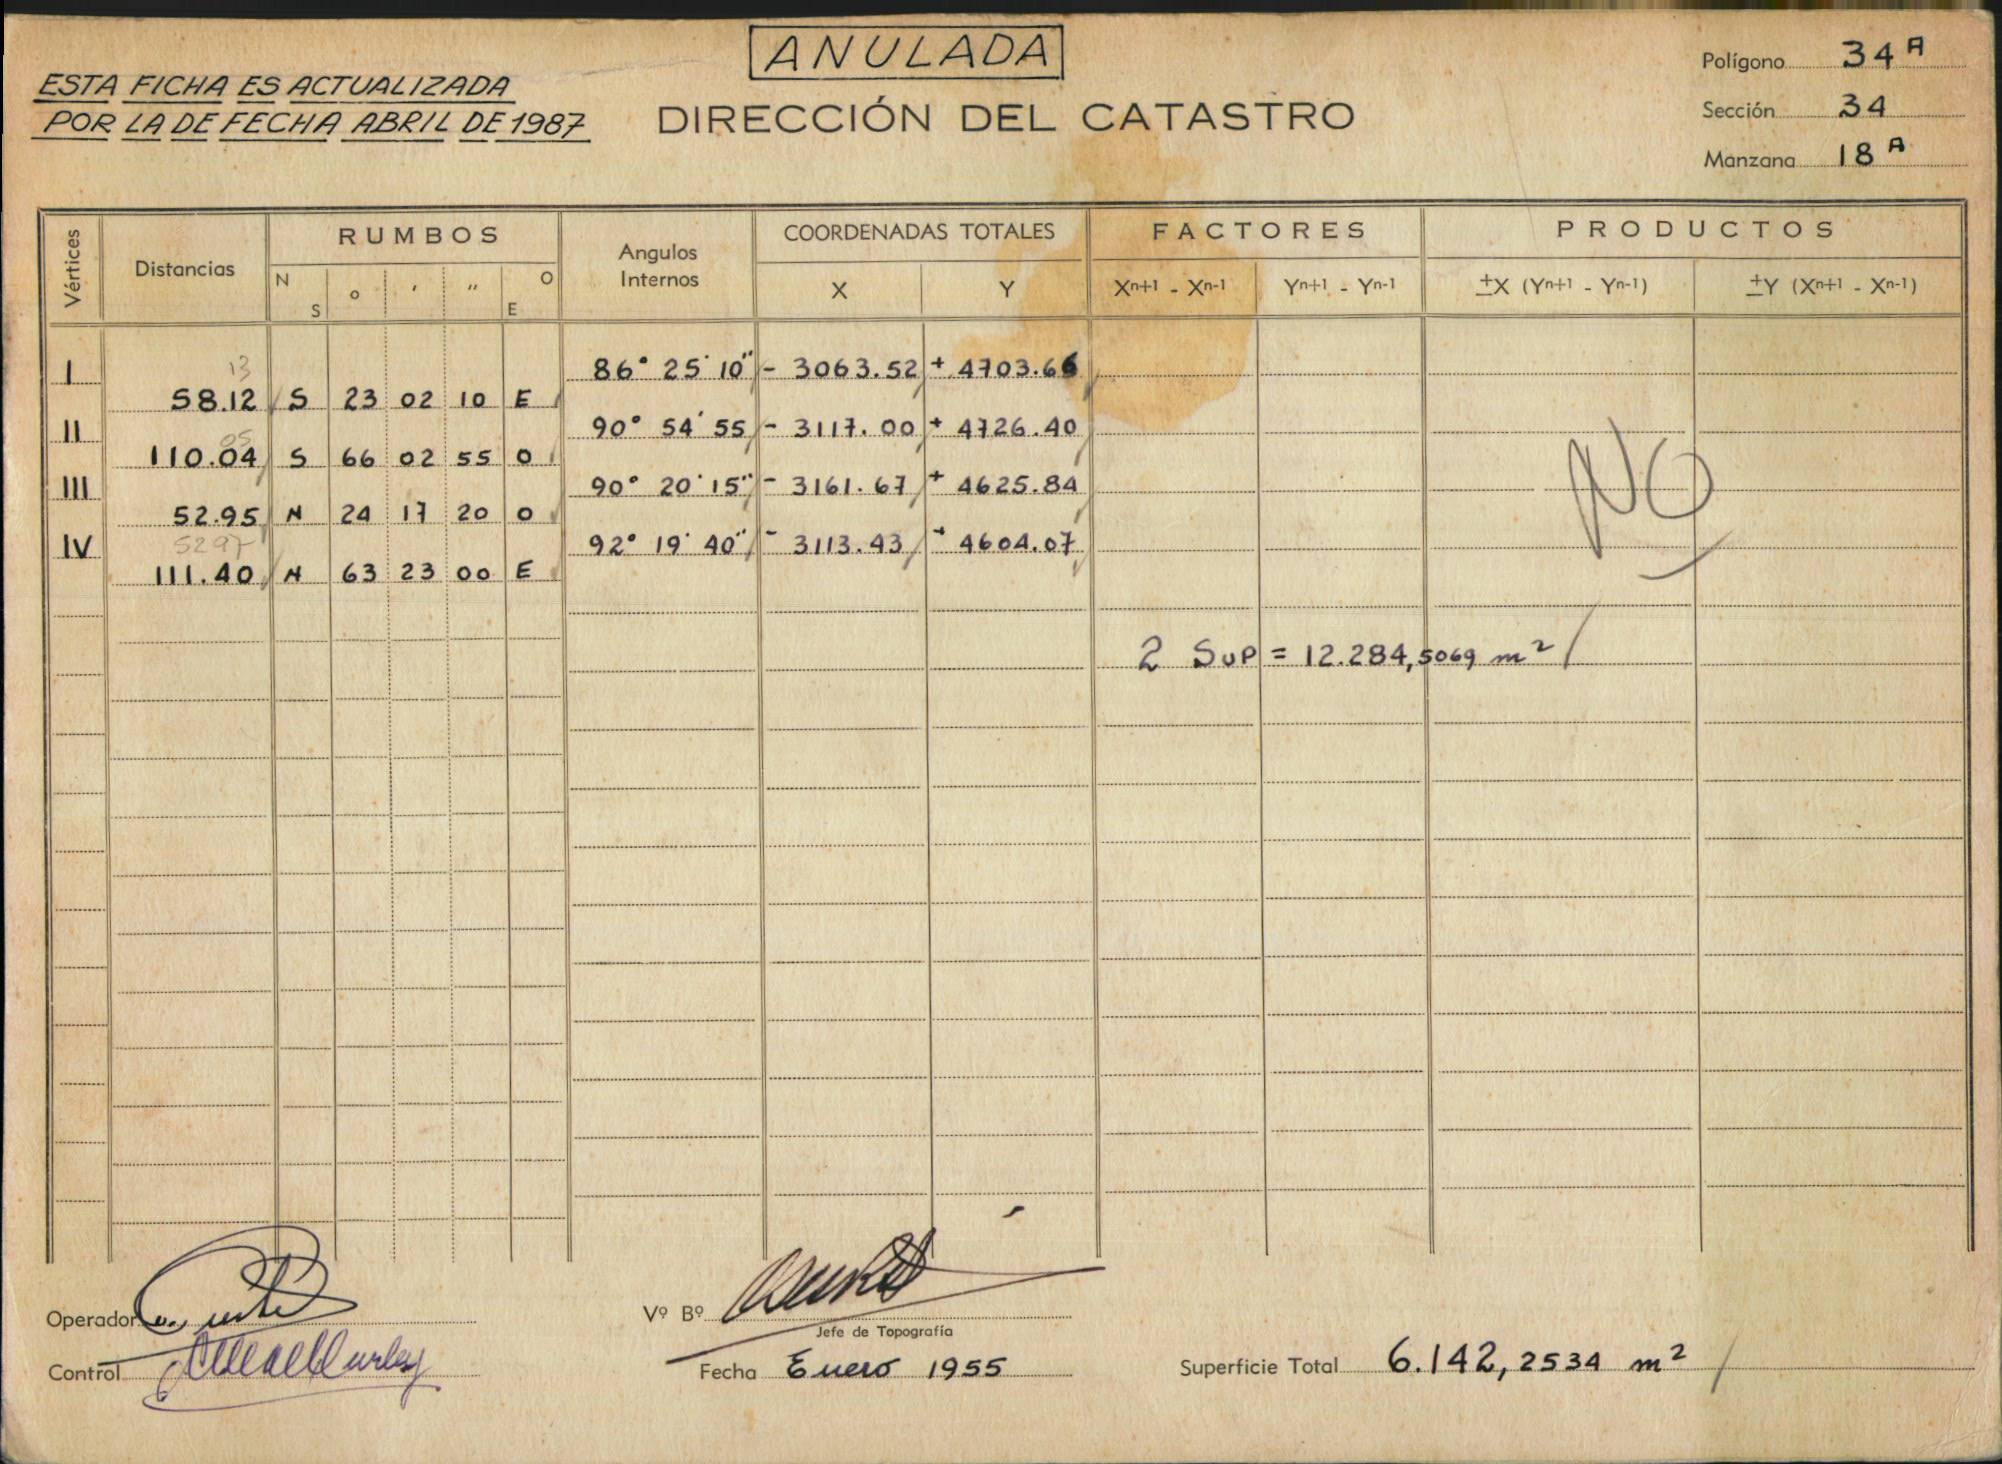 ANULADA
ESTA FICHA ES ACTUALIZADA
POR LA DE FECHA ABRIL DE 1987
DIRECCIÓN DEL CATASTRO
Polígono 34 A
Sección 34
Manzana 18 A
Vértices Distancias RUMBOS Angulos Internos COORDENADAS TOTALES FACTORES PRODUCTOS
N S o ' '' O E X Y Xn+1 - Xn-1 Yn+1 - Yn-1 ±X (Yn+1 - Yn-1) ±Y (Xn+1 - Xn-1)
13
I 86° 25' 10'' - 3063.52 + 4703.66
58.12 S 23 02 10 E
II 90° 54' 55 - 3117.00 + 4726.40
05
110.04 S 66 02 55 O
III 90° 20' 15'' - 3161.67 + 4625.84
52.95 N 24 17 20 O
IV 92° 19' 40'' - 3113.43 + 4604.07
5297
111.40 N 63 23 00 E
NO
2 Sup = 12.284,5069 m²
Operador
Vº Bº
Jefe de Topografía
Control
Fecha Enero 1955
Superficie Total 6.142,2534 m²